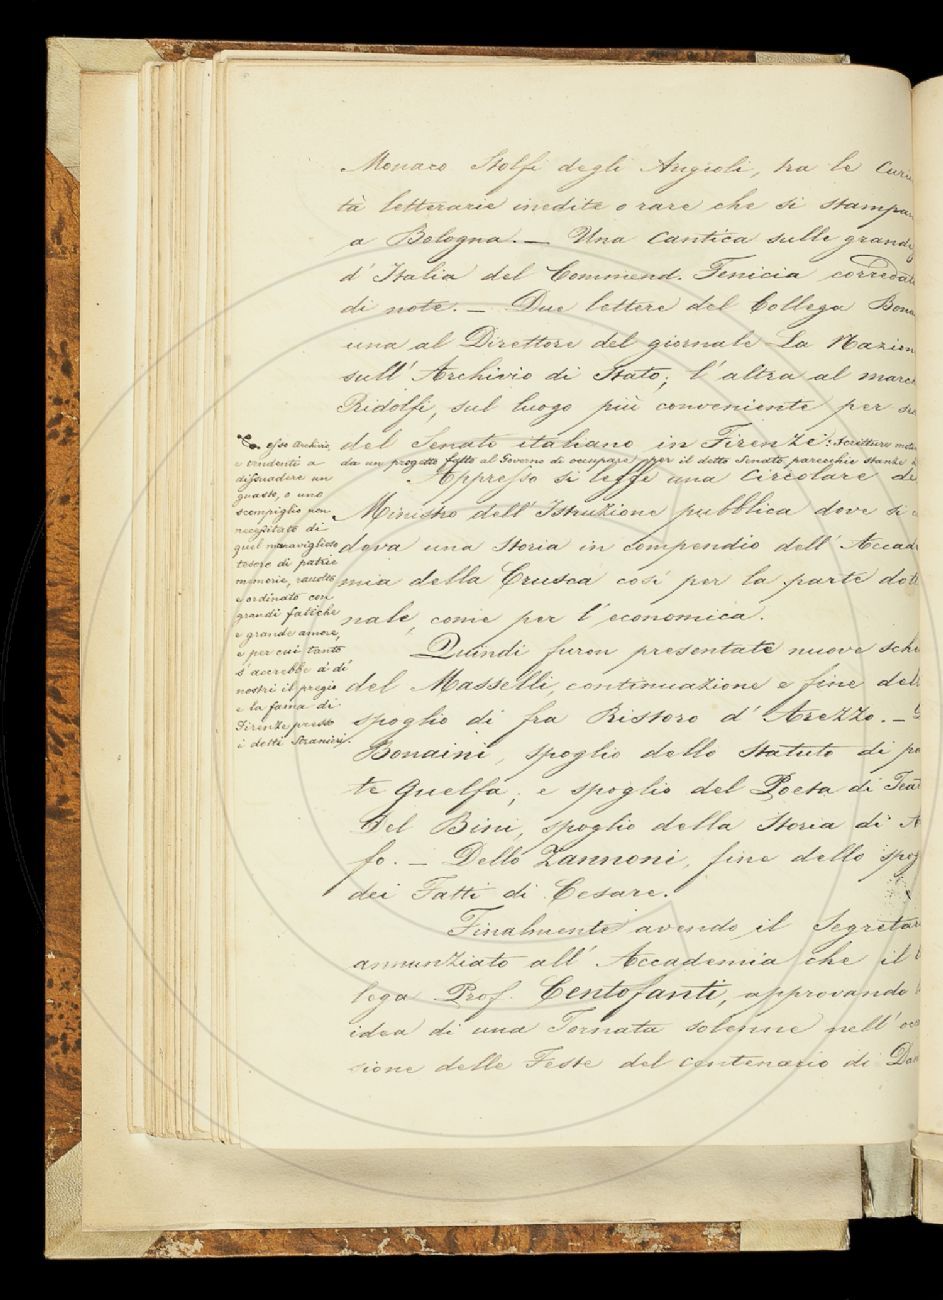 Monaco Stolfi degli Angioli, tra le Curio
tà letterarie inedite o rare che si stampan
a Bologna. — Una Cantica sulle grandez
d'Italia del Commend. Fenicia corredata
di note. — Due lettere del Collega Bona
una al Direttore del giornale La Nazion
sull' Archivio di Stato; l'altra al march
Ridolfi, sul luogo più conveniente per
del Senato italiano in Firenze: Scritture
da un progetto fatto al Governo di occupare, per il detto Senato, parecchie stanze
Appresso si lesse una Circolare de
Ministro dell' Istruzione pubblica dove si
dova una Storia in compendio dell' Accad
mia della Crusca così per la parte dot
nale, come per l'economica.
Quindi furon presentate nuove sche
del Masselli, continuazione e fine dell
spoglio di fra Ristoro d'Arezzo. —
Bonaini, spoglio dello Statuto di pa
te Guelfa; e spoglio del Poeta di Teat
Del Bini, spoglio della Storia di A
fo. — Dello Zannoni, fine dello spog
dei Fatti di Cesare.
Finalmente avendo il Segretar
annunziato all' Accademia che il
lega Prof. Centofanti, approvando
idea di una Tornata solenne nell' occ
sione delle Feste del centenario di Dan
esso Archivio,
e tendenti a
dissuadere un
guasto, o uno
scompiglio non
necessitato di
quel maraviglioso
tesoro di patrie
memorie, raccolto
e ordinato con
grandi fatiche
e grande amore,
e per cui tanto
s'accrebbe a' dì
nostri il pregio
e la fama di
Firenze presso
i dotti Stranieri.